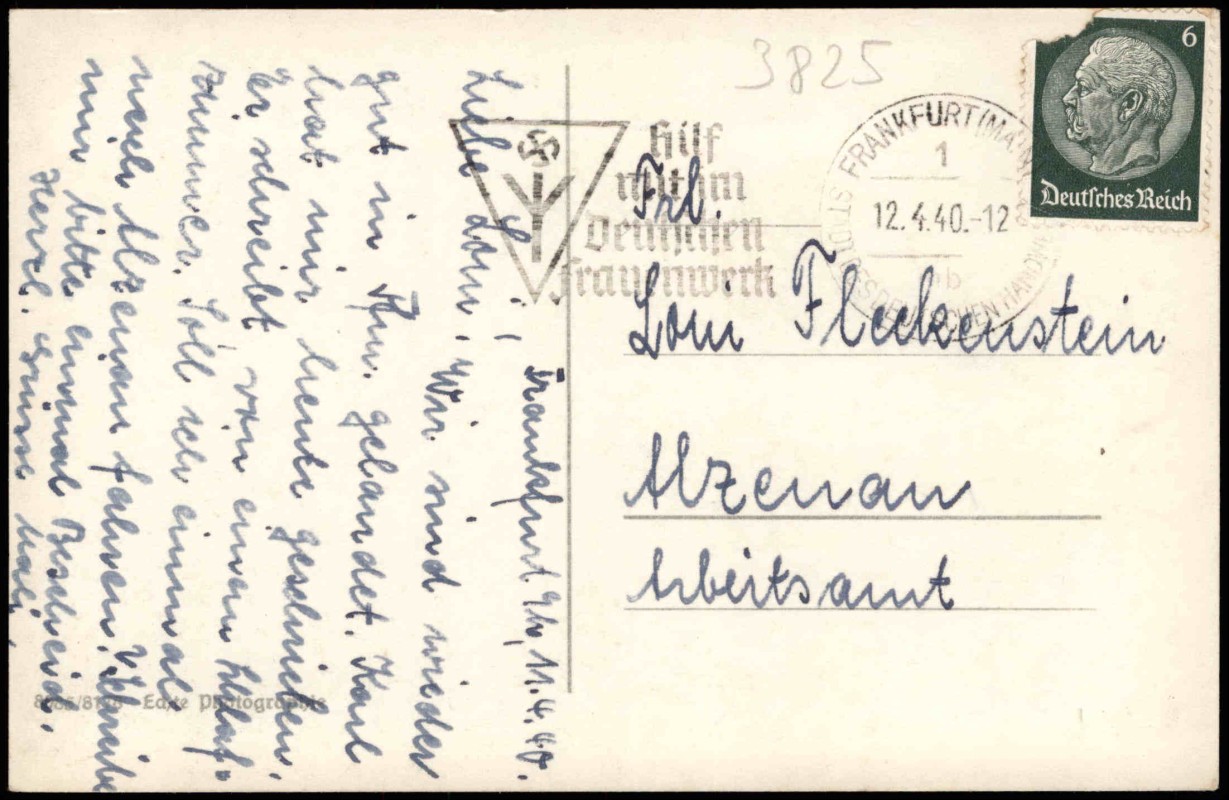 3825
6
Deutsches Reich
FRANKFURT (MAIN)
1
12.4.40.-12
b
STADT DES DEUTSCHEN HANDWERKS
Hilf
mit im
Deutschen
Frauenwerk
Frl.
Loni Fleckenstein
Alzenau
Arbeitsamt
Frankfurt 11.4.40.
Liebe Loni, Wir sind wieder
gut in gelandet. Karl
hat mir heute geschrieben.
Er schreibt von einem Schlaf-
zimmer. Soll ich einmal
nach Alzenau fahren? Schreibe
mir bitte einmal Bescheid.
Herzl. Grüsse
Echte Photographie